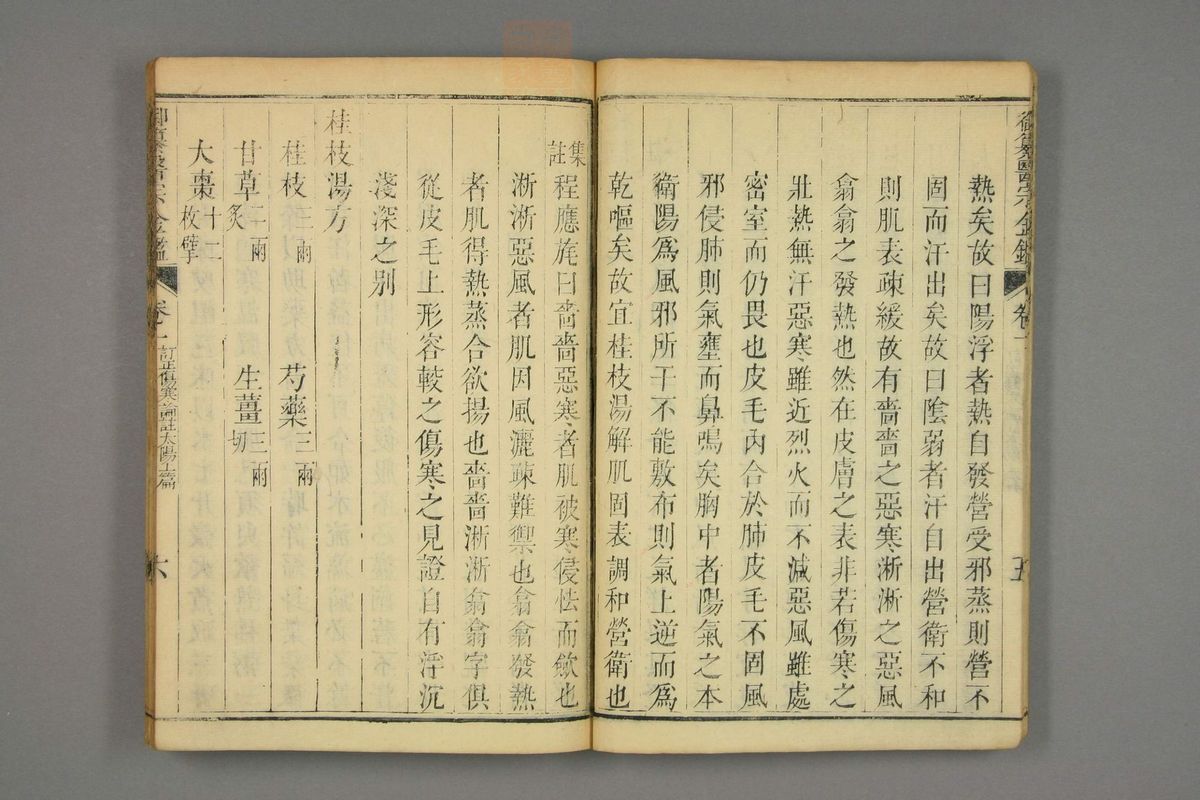 御纂醫宗金鑑 卷一 五
熱矣故曰陽浮者熱自發營受邪蒸則營不
固而汗出矣故曰陰弱者汗自出營衛不和
則肌表疎緩故有嗇嗇之惡寒淅淅之惡風
翕翕之發熱也然在皮膚之表非若傷寒之
壯熱無汗惡寒雖近烈火而不減惡風雖處
密室而仍畏也皮毛內合於肺皮毛不固風
邪侵肺則氣壅而鼻鳴矣胸中者陽氣之本
衛陽爲風邪所干不能敷布則氣上逆而爲
乾嘔矣故宜桂枝湯解肌固表調和營衛也
集註 程應旄曰嗇嗇惡寒者肌被寒侵怯而歛也
淅淅惡風者肌因風灑疎難禦也翕翕發熱
者肌得熱蒸合欲揚也嗇嗇淅淅翕翕字俱
從皮毛上形容較之傷寒之見證自有浮沉
淺深之别
桂枝湯方
桂枝三兩 芍藥三兩
甘草二兩炙 生薑三兩切
大棗十二枚擘
御纂醫宗金鑑 卷一 訂正傷寒論註太陽上篇 六